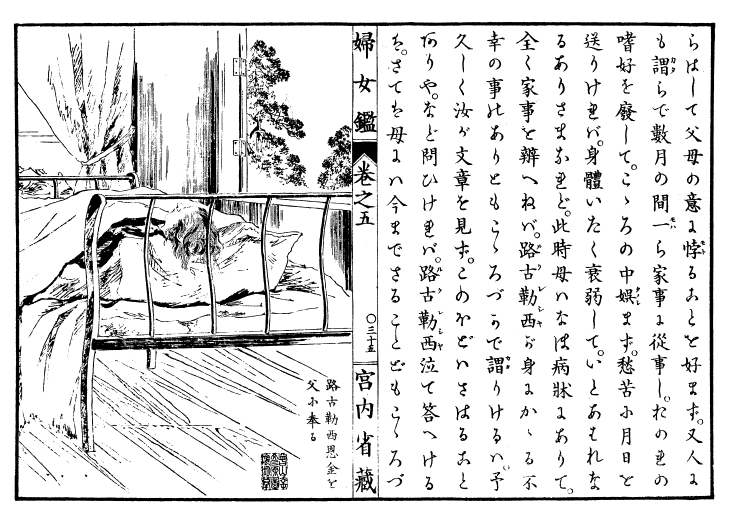 らはして父母の意に悖るあとを好まず。又人に
も謂らで數月の間一ら家事に從事し。たのれの
嗜好を廢して。こゝろの中娯まず。愁苦に月日を
送りけれバ。身體いたく衰弱して。いとあはれな
るありさまなれど。此時母ハなほ病牀にありて。
全く家事を辨へねバ。路古勒西が身にかゝる不
幸の事のありともこゝろづかで謂りけるハ。予
久しく汝が文章を見ず。このほどいさはるあと
ありや。など問ひけれバ。路古勒西泣て答へける
を。さてを母にハ今までさることどもこゝろづ
婦女鑑
卷之五
〇三十五
宮内省藏
路古勒西恩金を
父に奉る